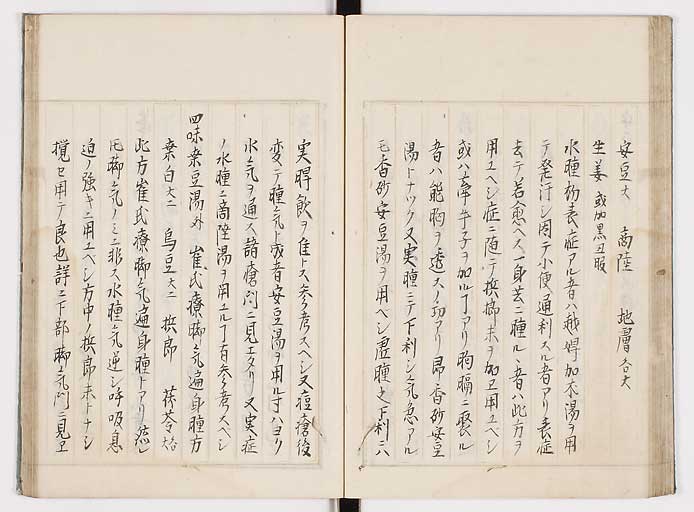 安豆大 商陸 地膚各大
生姜 或加黒丑服
水腫初表症アル者ハ越婢加朮湯ヲ用
テ発汗シ因テ小便通利スル者アリ表症
去テ若愈ヘス一身共ニ腫ル者ハ此方ヲ
用ユヘシ症ニ随テ檳榔末ヲ加ヱ用ユヘシ
或ハ牽牛子ヲ加ルヿアリ胸膈ニ
者ハ能胸ヲ透スノ功アリ 香砂安豆
湯トナツク又実腫ニテ下利シ気急アル
モ香砂安豆湯ヲ用ベシ虚腫之下利ニハ
実脾飲ヲ 参考スヘシ又 瘡後
変テ腫気ト成者安豆湯ヲ用ルヿハヨリ
水気ヲ通ス諸瘡門ニ見エタリ又実症
ノ水腫ニ商陸湯ヲ用ユルヿ有参考スヘシ
四味桒豆湯 外 崔氏療脚気遍身腫方
桒白大二 烏豆大二 檳郎 茯苓
此方崔氏療脚気遍身腫トアリ然レ
𪜈脚気ノミニ非ス水腫気逆シ呼吸息
迫ノ強キニ用ユヘシ方中ノ檳郎末トナシ
攪セ用テ良也詳ニ下部脚気門ニ見エ